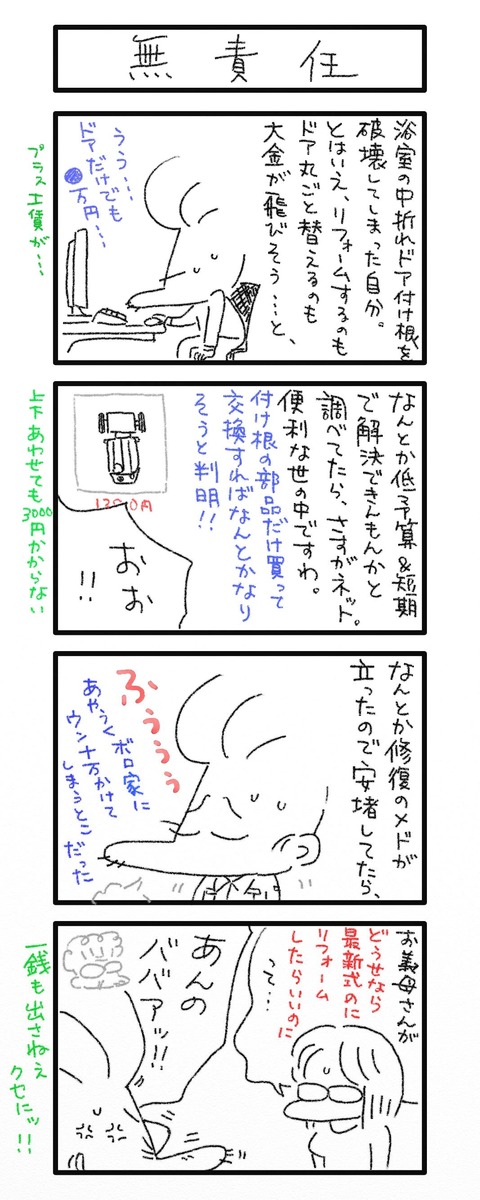 無責任
浴室の中折れドア付け根を
破壊してしまった自分。
とはいえ、リフォームするのも
ドア丸ごと替えるのも
大金が飛びそう…と、
うう…
ドアだけでも
●万円…
プラス工賃が…
なんとか低予算&短期
で解決できんもんかと
調べてたら、さすがネット。
便利な世の中ですわ。
付け根の部品だけ買って
交換すればなんとかなり
そうと判明!!
おお
!!
上下あわせても3000円かからない
なんとか修復のメドが
立ったので安堵してたら、
ふぅぅぅ
あやうくボロ家に
ウン十万かけて
しまうとこだった
お義母さんが
どうせなら
最新式のに
リフォーム
したらいいのに
って…
あんの
ババアッ!!
一銭も出さねぇ
クセにッ!!